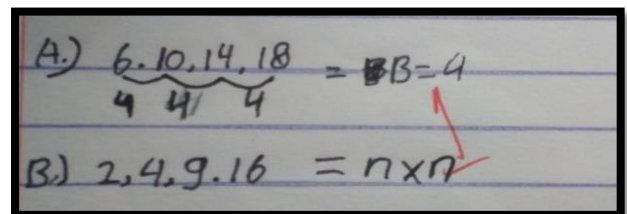 A.) 6.10,14,18 = B=4
4 4 4
B.) 2,4,9.16 = n×n